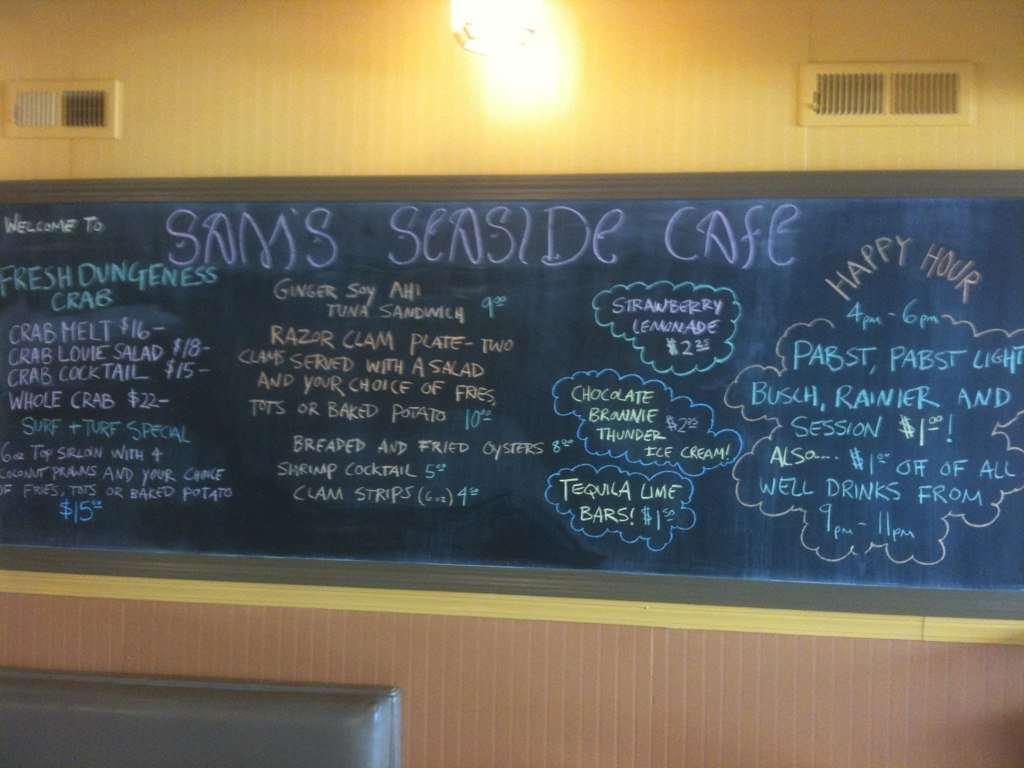 WELCOME TO
SAM'S SEASIDE CAFE
FRESH DUNGENESS
CRAB
CRAB MELT $16-
CRAB LOUIE SALAD $18-
CRAB COCKTAIL $15-
WHOLE CRAB $22-
SURF + TURF SPECIAL
6oz TOP SIRLOIN WITH 4
COCONUT PRAWNS AND YOUR CHOICE
OF FRIES, TOTS OR BAKED POTATO
$15
GINGER SOY AHI
TUNA SANDWICH 9
RAZOR CLAM PLATE - TWO
CLAMS SERVED WITH A SALAD
AND YOUR CHOICE OF FRIES,
TOTS OR BAKED POTATO 10
BREADED AND FRIED OYSTERS 8
SHRIMP COCKTAIL 5
CLAM STRIPS (6oz) 4
STRAWBERRY
LEMONADE
$2
CHOCOLATE
BROWNIE $2
THUNDER
ICE CREAM!
TEQUILA LIME
BARS! $1.50
HAPPY HOUR
4pm - 6pm
PABST, PABST LIGHT
BUSCH, RAINIER AND
SESSION $1.00!
ALSO.... $1 OFF OF ALL
WELL DRINKS FROM
9pm - 11pm